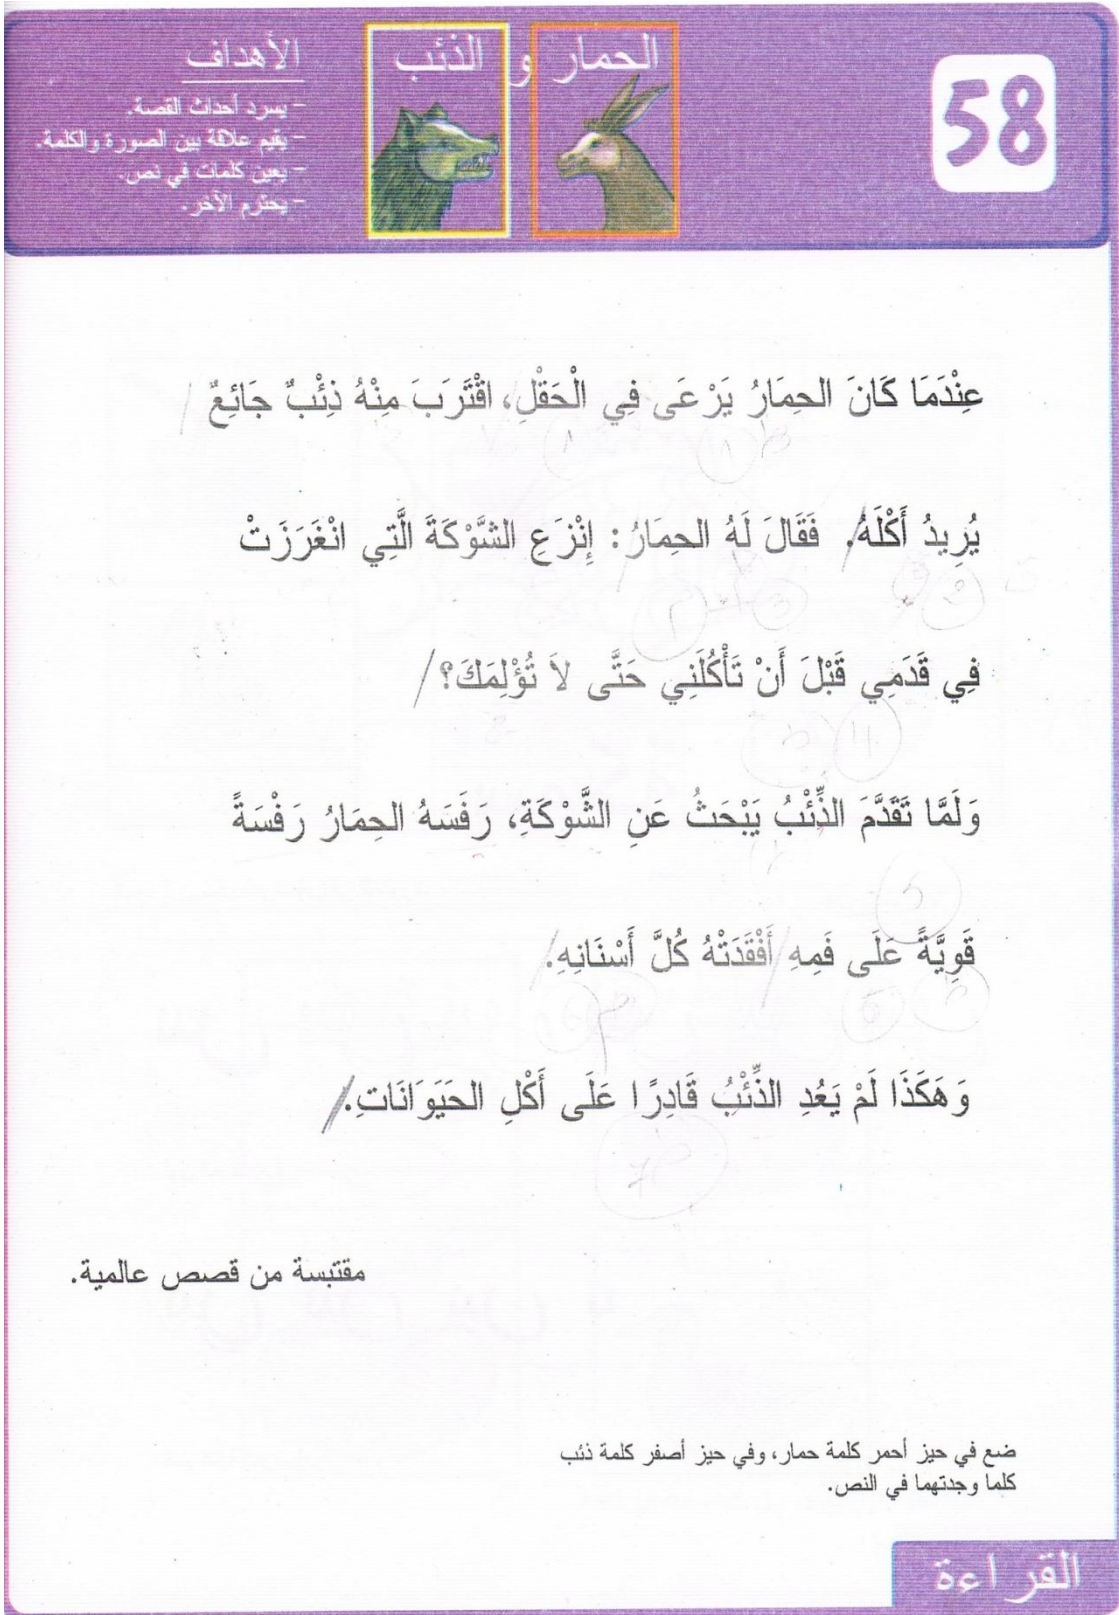 58
الحمار و الذئب
الأهداف
- يسرد أحداث القصة.
- يقيم علاقة بين الصورة والكلمة.
- يعين كلمات في نص.
- يحترم الآخر.
عِنْدَمَا كَانَ الحِمَارُ يَرْعَى فِي الْحَقْلِ، اقْتَرَبَ مِنْهُ ذِئْبٌ جَائِعٌ /
يُرِيدُ أَكْلَهُ/. فَقَالَ لَهُ الحِمَارُ: إِنْزَعِ الشَّوْكَةَ الَّتِي انْغَرَزَتْ
فِي قَدَمِي قَبْلَ أَنْ تَأْكُلَنِي حَتَّى لاَ تُؤْلِمَكَ؟ /
وَلَمَّا تَقَدَّمَ الذِّئْبُ يَبْحَثُ عَنِ الشَّوْكَةِ، رَفَسَهُ الحِمَارُ رَفْسَةً
قَوِيَّةً عَلَى فَمِهِ / أَفْقَدَتْهُ كُلَّ أَسْنَانِهِ. /
وَهَكَذَا لَمْ يَعُدِ الذِّئْبُ قَادِرًا عَلَى أَكْلِ الحَيَوَانَاتِ. /
مقتبسة من قصص عالمية.
ضع في حيز أحمر كلمة حمار، وفي حيز أصفر كلمة ذئب
كلما وجدتهما في النص.
القراءة